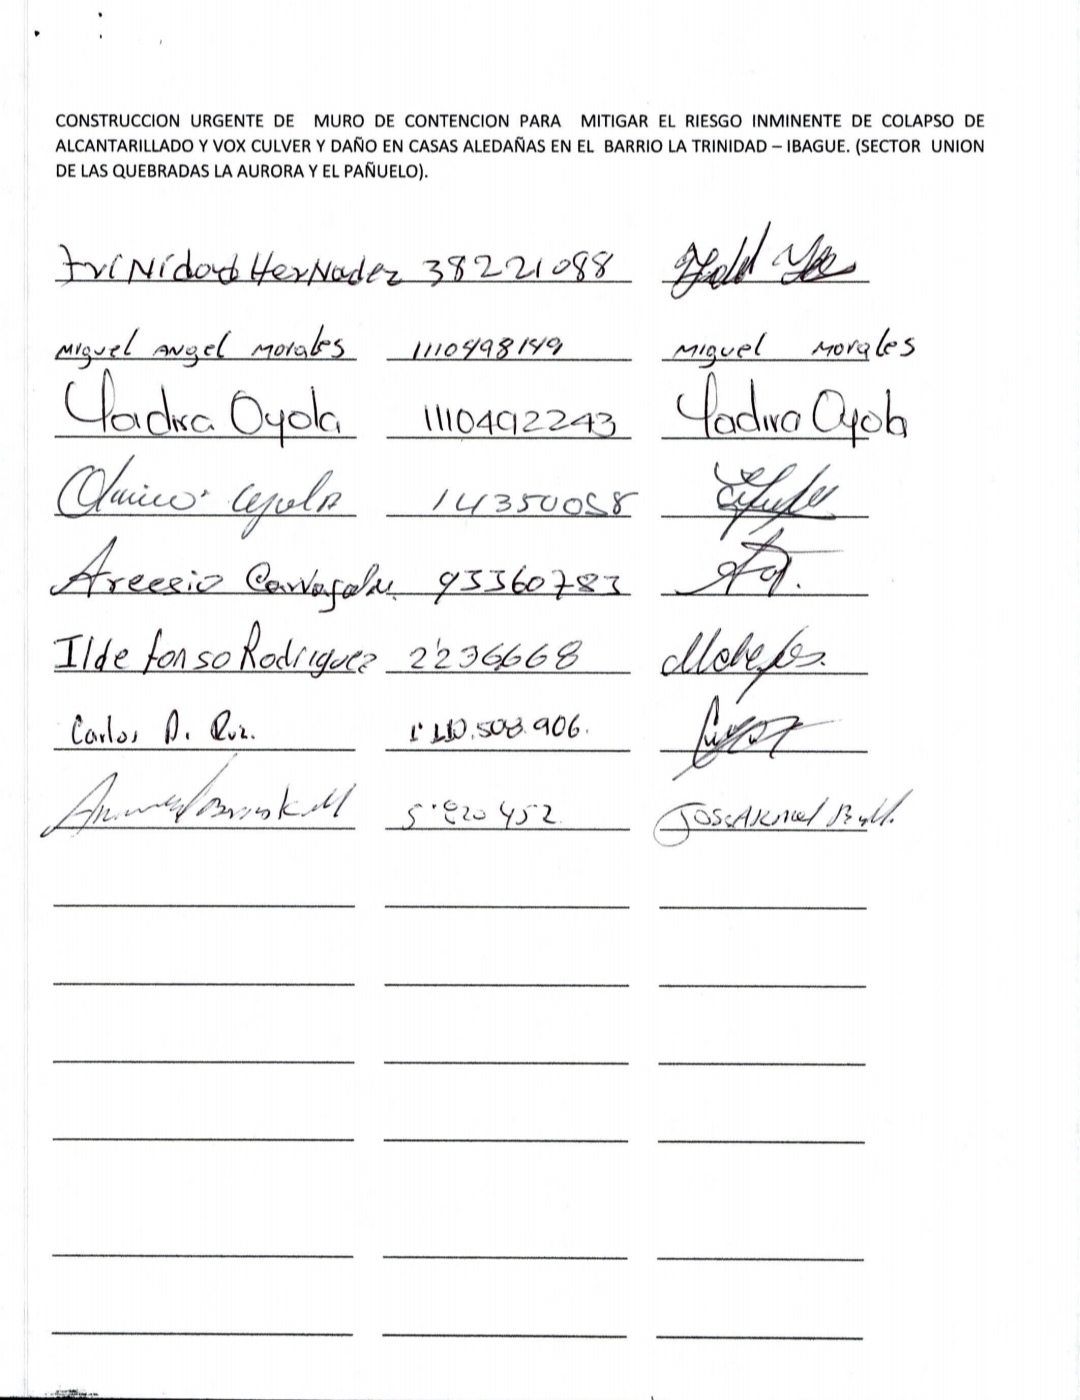 CONSTRUCCION URGENTE DE MURO DE CONTENCION PARA MITIGAR EL RIESGO INMINENTE DE COLAPSO DE
ALCANTARILLADO Y VOX CULVER Y DAÑO EN CASAS ALEDAÑAS EN EL BARRIO LA TRINIDAD – IBAGUE. (SECTOR UNION
DE LAS QUEBRADAS LA AURORA Y EL PAÑUELO).
TriNidad HerNadez 38221088
Miguel Angel Morales 1110498149 Miguel Morales
Yadira Oyola 1110492243 Yadira Oyola
14350058
Arcesio Carvajal 93360783
Ildefonso Rodriguez 2236668
Carlos A. Ruz. 1'110.508.906.
5'820452